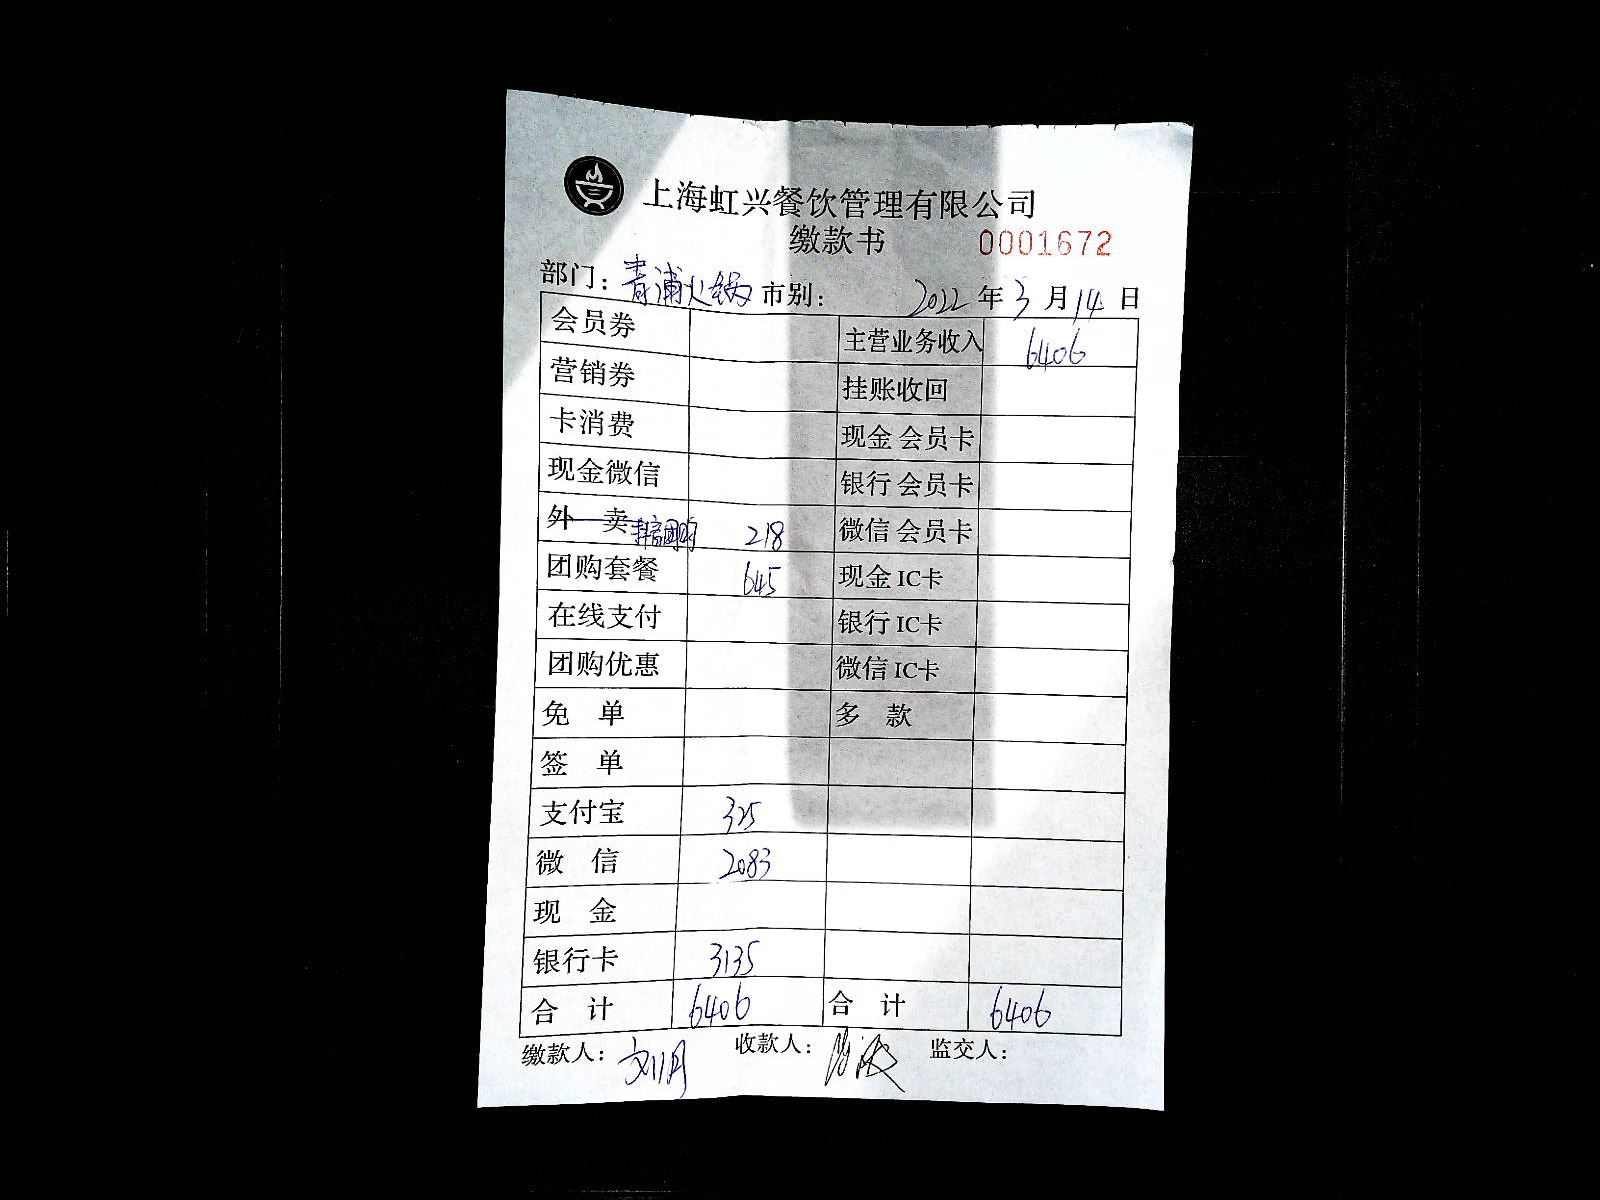 上海虹兴餐饮管理有限公司
缴款书 0001672
部门：青浦火锅 市别： 2022 年 3 月 14 日
会员券 主营业务收入 6406
营销券 挂账收回
卡消费 现金 会员卡
现金微信 银行 会员卡
外 卖 抖音团购 218 微信 会员卡
团购套餐 645 现金 IC卡
在线支付 银行 IC卡
团购优惠 微信 IC卡
免 单 多 款
签 单
支付宝 325
微 信 2083
现 金
银行卡 3135
合 计 6406 合 计 6406
缴款人： 收款人： 监交人：